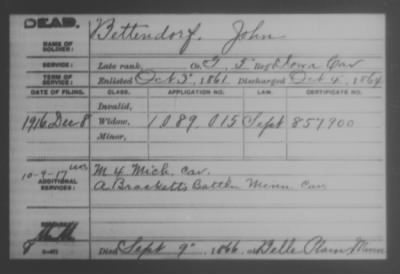 DEAD.
NAME OF SOLDIER: Bettendorf, John
SERVICE: Late rank, Co. G, 5" Reg't Iowa Cav
TERM OF SERVICE: Enlisted Oct 3", 1861 Discharged Oct 4", 1864
DATE OF FILING. CLASS. APPLICATION NO. LAW. CERTIFICATE NO.
Invalid,
1916 Dec 8 Widow, 1089.015 Sept 857900
Minor,
10-9-17
ADDITIONAL SERVICES: M 4 Mich. Cav.
A Bracketts Battln Minn. Cav
Died Sept 9", 1866, at Belle Plain Minn